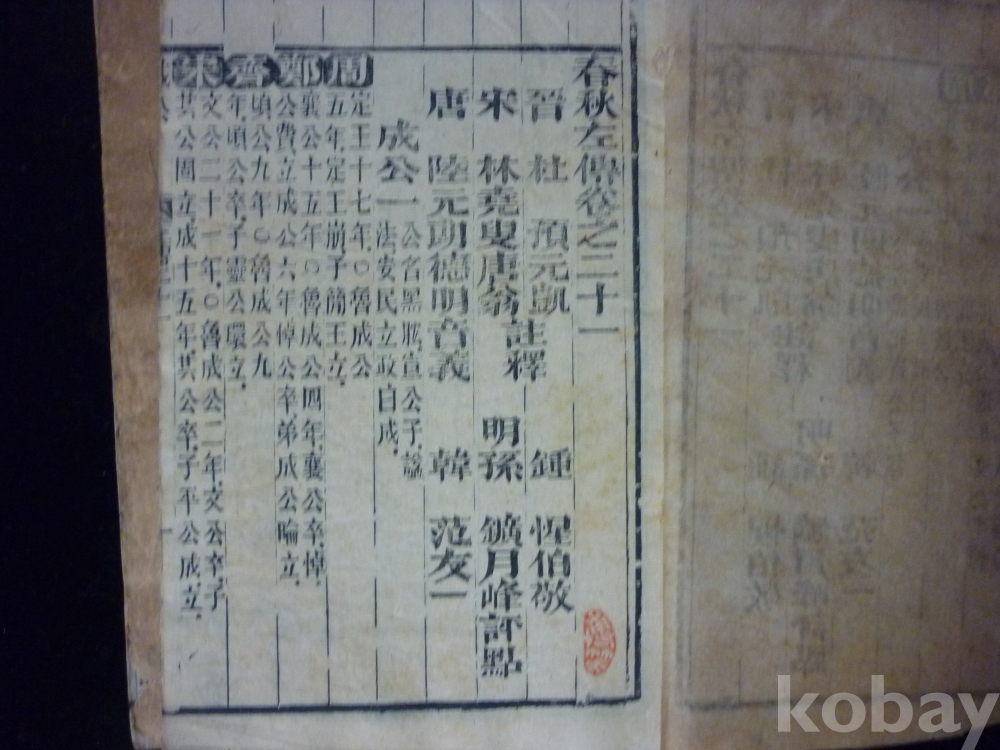 春秋左傳卷之二十一
晉 杜 預元凱 鍾 惺伯敬
註釋
宋 林堯叟唐翁 明孫 鑛月峰評點
唐 陸元朗德明音義 韓 范友一
成公一
公名黑肱宣公子謚
法安民立政曰成
周
定王十七年○魯成公
五年定王崩子簡王立
鄭
襄公十五年○魯成公四年襄公卒悼
公費立成公六年悼公卒弟成公睔立
齊
頃公九年○魯成公九
年頃公卒子靈公環立
宋
文公二十一年○魯成公二年文公卒子
共公固立成十五年共公卒子平公成立
kobay